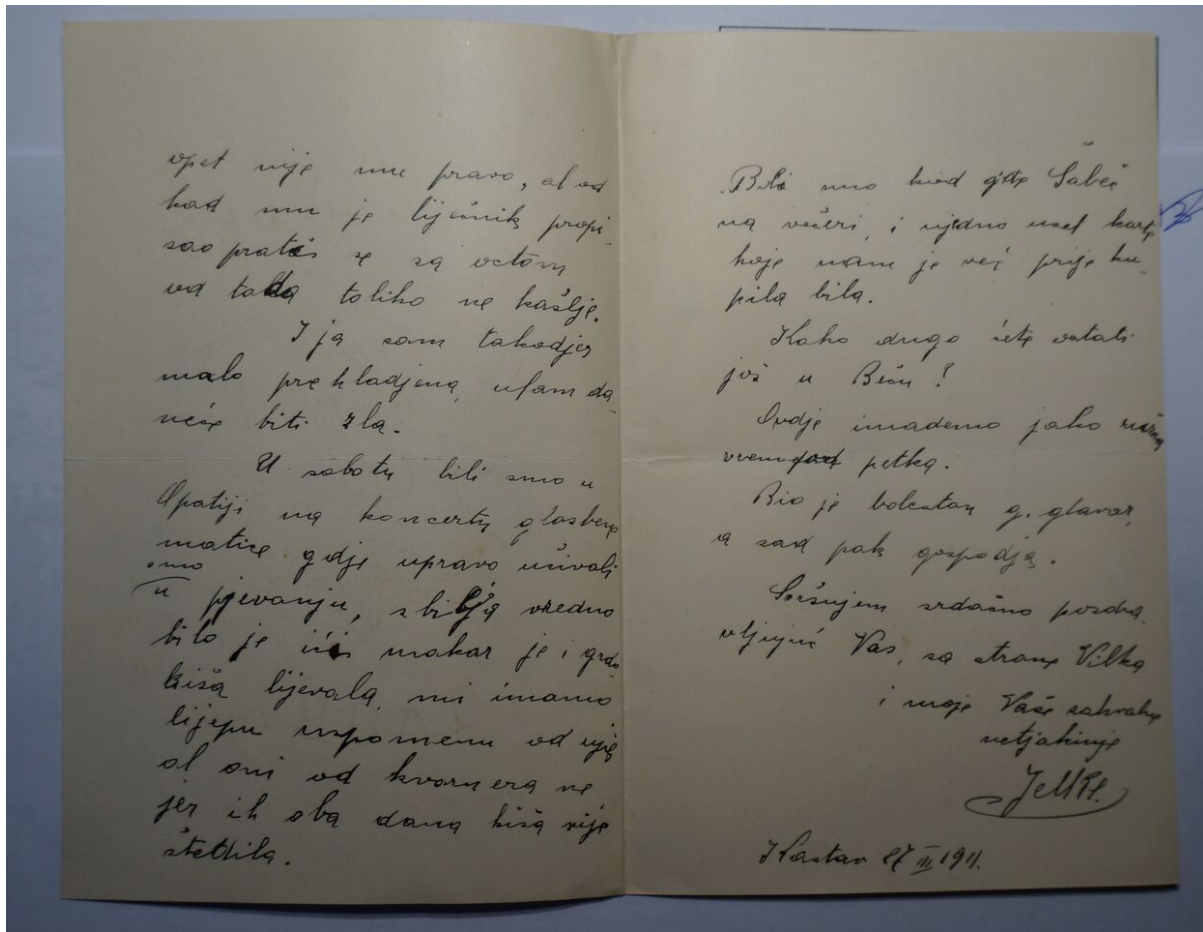 opet nije mu pravo, al od
kad mu je liječnik propi-
sao prati se sa octom
od tada toliko ne kašlje.
I ja sam takodjer
malo prekladjena, ufam da
neće biti zla.
U sobotu bili smo u
Opatiji na koncertu glasbene
matice gdje upravo uživali
smo
u pjevanju, zbilja vredno
bilo je ići makar je i grdo
kiša lijevala, mi imamo
lijepu uspomenu od nje
al oni od kvarnera ne
jer ih oba dana kiša nije
štedila.
Bili smo kod gdje Šabec
na večeri, i ujedno uzel karte
koje nam je već prije ku-
pila bila.
Kako dugo ćete ostati
još u Beču?
Ovdje imademo jako ružno
vreme petka.
Bio je bolestan g. glavar,
a sad pak gospodja.
Svršujem srdačno pozdra-
vljajuć Vas, sa strane Vilka
i moje Vaše zahvalne
netjakinje
Kastav 27 III 1911.